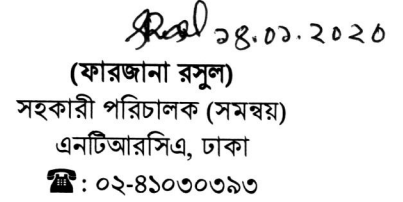 ২৪.০১.২০২০
(ফারজানা রসুল)
সহকারী পরিচালক (সমন্বয়)
এনটিআরসিএ, ঢাকা
☎: ০২-৪১০৩০৩৯৩